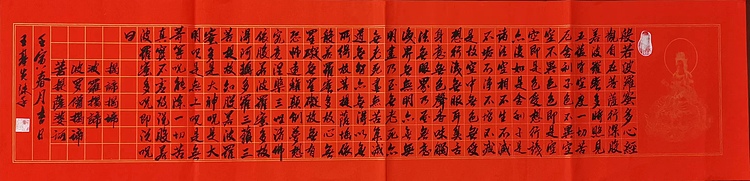 般若波羅蜜多心經
觀自在菩薩行深般
若波羅蜜多時照見
五蘊皆空度一切苦
厄舍利子色不異空
空不異色色即是空
空即是色受想行識
亦復如是舍利子是
諸法空相不生不滅
不垢不淨不增不減
是故空中無色無受
想行識無眼耳鼻舌
身意無色聲香味觸
法無眼界乃至無意
識界無無明亦無無
明盡乃至無老死亦
無老死盡無苦集滅
道無智亦無得以無
所得故菩提薩埵依
般若波羅蜜多故心
無罣礙無罣礙故無有
恐怖遠離顛倒夢想
究竟涅槃三世諸佛
依般若波羅蜜多故
得阿耨多羅三藐三
菩提故知般若波羅
蜜多是大神咒是大
明咒是無上咒是無
等等咒能除一切苦
真實不虛故說般若
波羅蜜多咒即說咒
曰
揭諦揭諦
波羅揭諦
波羅僧揭諦
菩提薩婆訶
壬寅春月吉日